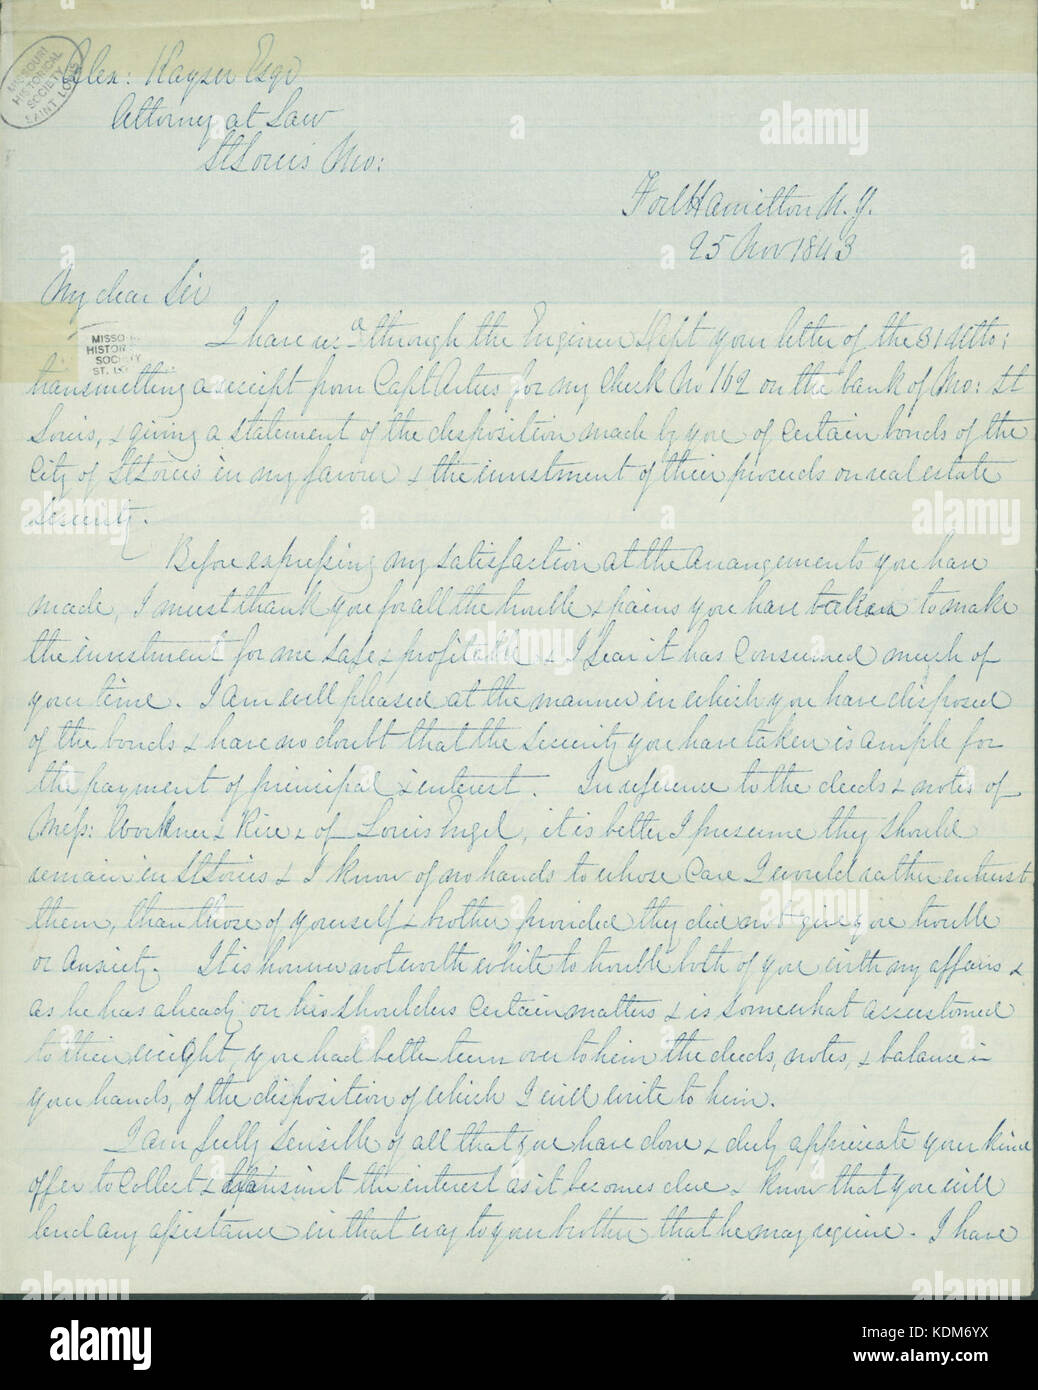 Alex: Kayser Esqr
Attorney at Law
St Louis Mo:
MISSOURI HISTORICAL SOCIETY SAINT LOUIS
Fort Hamilton N. Y.
25 Nov 1843
My dear Sir
I have recd through the Engineer Dept your letter of the 31 Ulto:
transmitting a receipt from Capt for my Check No 162 on the bank of Mo: St
Louis, & giving a statement of the disposition made by you of certain bonds of the
City of St Louis in my favour & the investment of their proceeds on real estate
security.
MISSOURI
HISTORICAL
SOCIETY
ST. LOUIS
Before expressing my satisfaction at the arrangements you have
made, I must thank you for all the trouble & pains you have taken to make
the investment for me safe & profitable & I fear it has consumed much of
your time. I am well pleased at the manner in which you have disposed
of the bonds & have no doubt that the security you have taken is ample for
the payment of principal & interest. In reference to the deeds & notes of
Messs: Workner & Rice & of Louis Engel, it is better I presume they should
remain in St Louis & I know of no hands to whose care I would rather entrust
them, than those of yourself & brother provided they did not give you trouble
or anxiety. It is however not worth while to trouble both of you with my affairs &
as he has already on his shoulders certain matters & is somewhat accustomed
to their weight, you had better turn over to him the deeds, notes, & balance in
your hands, of the disposition of which I will write to him.
I am fully sensible of all that you have done & duly appreciate your kind
offer to collect & transmit the interest as it becomes due & know that you will
lend any assistance in that way to your brother that he may require. I have
alamy
Image ID: KDM6YX
www.alamy.com